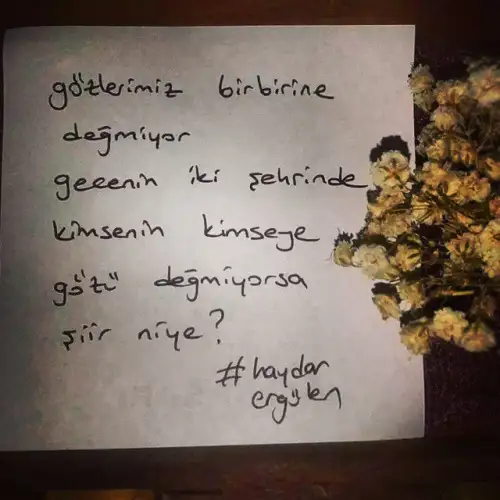 gözlerimiz birbirine
değmiyor
gecenin iki şehrinde
kimsenin kimseye
gözü değmiyorsa
şiir niye?
#haydar
ergülen